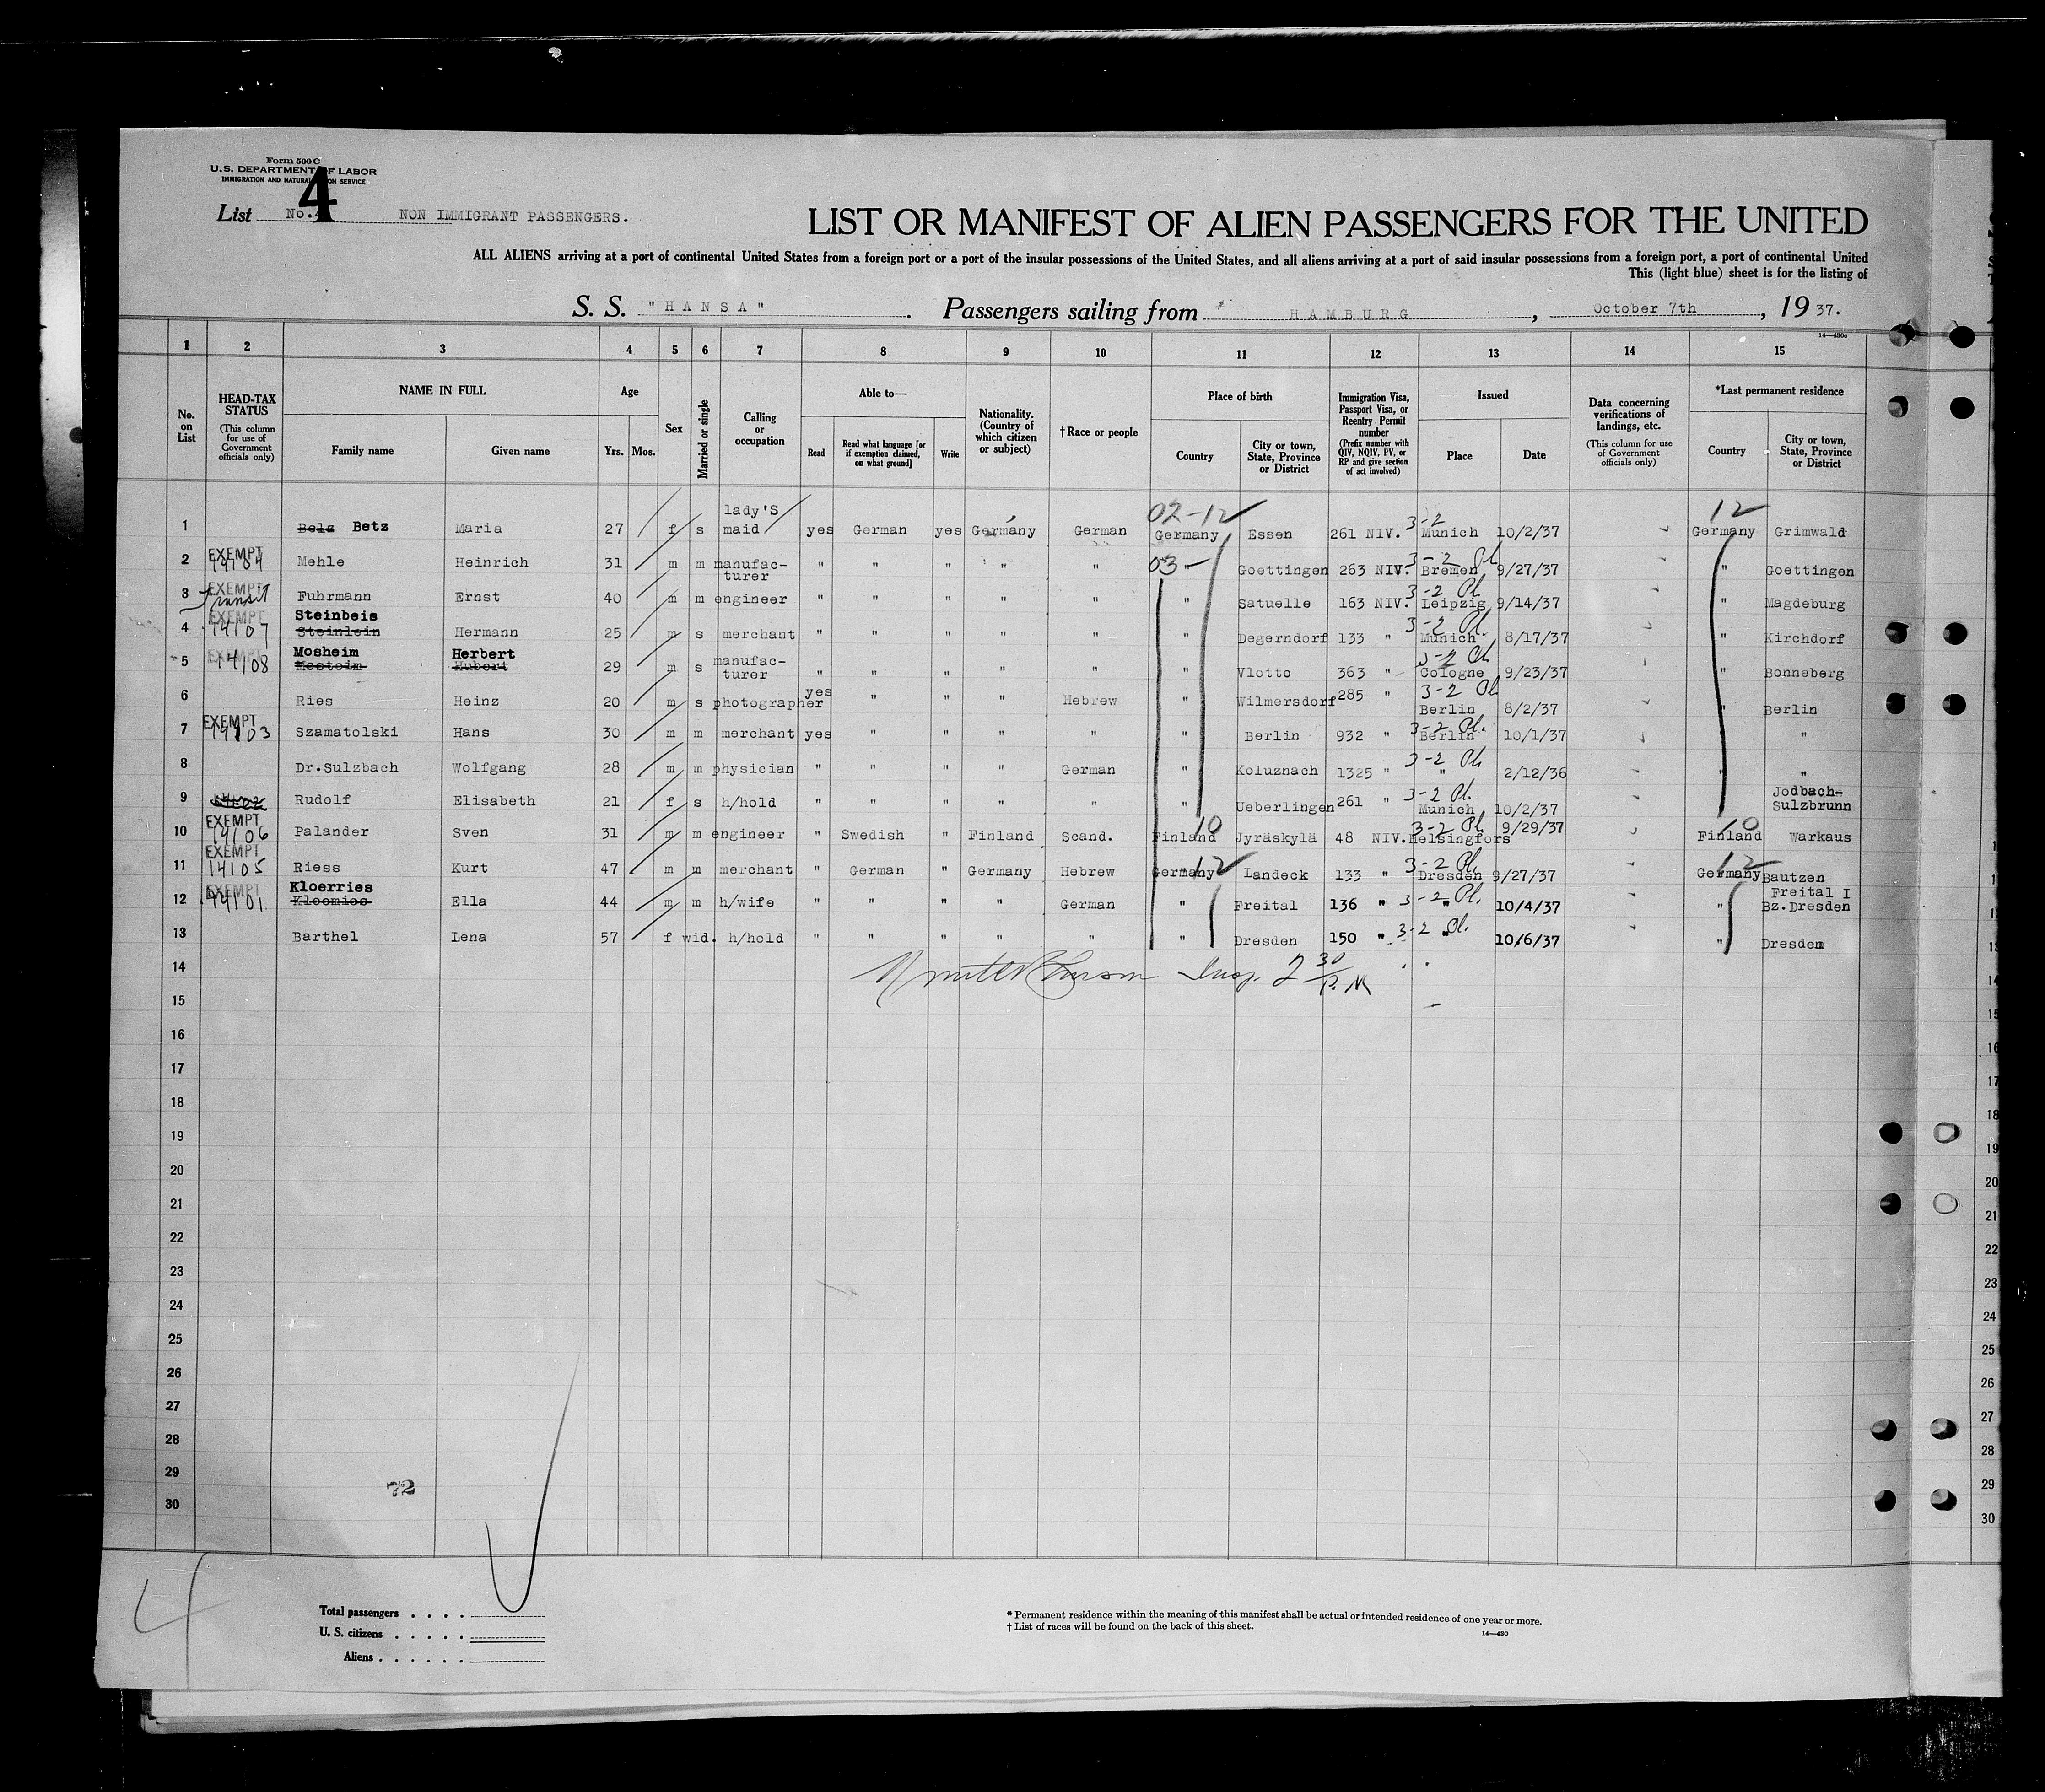 Form 500 C
U.S. DEPARTMENT OF LABOR
IMMIGRATION AND NATURALIZATION SERVICE
4
List No. 4 NON IMMIGRANT PASSENGERS.
LIST OR MANIFEST OF ALIEN PASSENGERS FOR THE UNITED
ALL ALIENS arriving at a port of continental United States from a foreign port or a port of the insular possessions of the United States, and all aliens arriving at a port of said insular possessions from a foreign port, a port of continental United
This (light blue) sheet is for the listing of
S. S. "HANSA". Passengers sailing from HAMBURG, October 7th, 19 37.
14—430c
1 2 3 4 5 6 7 8 9 10 11 12 13 14 15
No. on List
HEAD-TAX STATUS (This column for use of Government officials only)
NAME IN FULL Family name Given name
Age Yrs. Mos.
Sex
Married or single
Calling or occupation
Able to— Read Read what language [or if exemption claimed, on what ground] Write
Nationality. (Country of which citizen or subject)
†Race or people
Place of birth Country City or town, State, Province or District
Immigration Visa, Passport Visa, or Reentry Permit number (Prefix number with QIV, NQIV, PV, or RP and give section of act involved)
Issued Place Date
Data concerning verifications of landings, etc. (This column for use of Government officials only)
*Last permanent residence Country City or town, State, Province or District
02-12 12
1 Betz Maria 27 f s lady'S maid yes German yes Germany German Germany Essen 261 NIV. 3-2 Munich 10/2/37 Germany Grimwald
2 EXEMPT 14104 Mehle Heinrich 31 m m manufac-turer " " " " " 03 - " Goettingen 263 NIV. 3-2 Pl Bremen 9/27/37 " Goettingen
3 EXEMPT transit Fuhrmann Ernst 40 m m engineer " " " " " " Satuelle 163 NIV. 3-2 Pl Leipzig 9/14/37 " Magdeburg
4 EXEMPT 14107 Steinbeis Steinlein Hermann 25 m s merchant " " " " " " Degerndorf 133 " 3-2 Pl. Munich 8/17/37 " Kirchdorf
5 EXEMPT 14108 Mosheim Mosteim Herbert Hubert 29 m s manufac-turer " " " " " " Vlotto 363 " 3-2 Pl Cologne 9/23/37 " Bonneberg
6 Ries Heinz 20 m s photographer yes " " " Hebrew " Wilmersdorf 285 " 3-2 Pl Berlin 8/2/37 " Berlin
7 EXEMPT 14103 Szamatolski Hans 30 m m merchant yes " " " " " Berlin 932 " 3-2 Pl. Berlin 10/1/37 " "
8 Dr.Sulzbach Wolfgang 28 m m physician " " " " German " Koluznach 1325 " 3-2 Pl " 2/12/36 " "
9 Rudolf Elisabeth 21 f s h/hold " " " " " " Ueberlingen 261 " 3-2 Pl. Munich 10/2/37 Jodbach-Sulzbrunn
10 EXEMPT 14106 Palander Sven 31 m m engineer " Swedish " Finland Scand. Finland 10 Jyräskylä 48 NIV. 3-2 Pl Helsingfors 9/29/37 Finland 10 Warkaus
11 EXEMPT 14105 Riess Kurt 47 m m merchant " German " Germany Hebrew Germany 12 Landeck 133 " 3-2 Pl. Dresden 9/27/37 Germany 12 Bautzen
12 EXEMPT 14101 Kloerries Kloomios Ella 44 m m h/wife " " " " German " Freital 136 " 3-2 Pl. " 10/4/37 " Freital I Bz.Dresden
13 Barthel Lena 57 f wid. h/hold " " " " " " Dresden 150 " 3-2 Pl. " 10/6/37 " Dresden
14 Insp. 2 30 P.M
15
16
17
18
19
20
21
22
23
24
25
26
27
28
29
30
72
4
Total passengers . . . .
U. S. citizens . . . . .
Aliens . . . . . .
* Permanent residence within the meaning of this manifest shall be actual or intended residence of one year or more.
† List of races will be found on the back of this sheet.
14—430